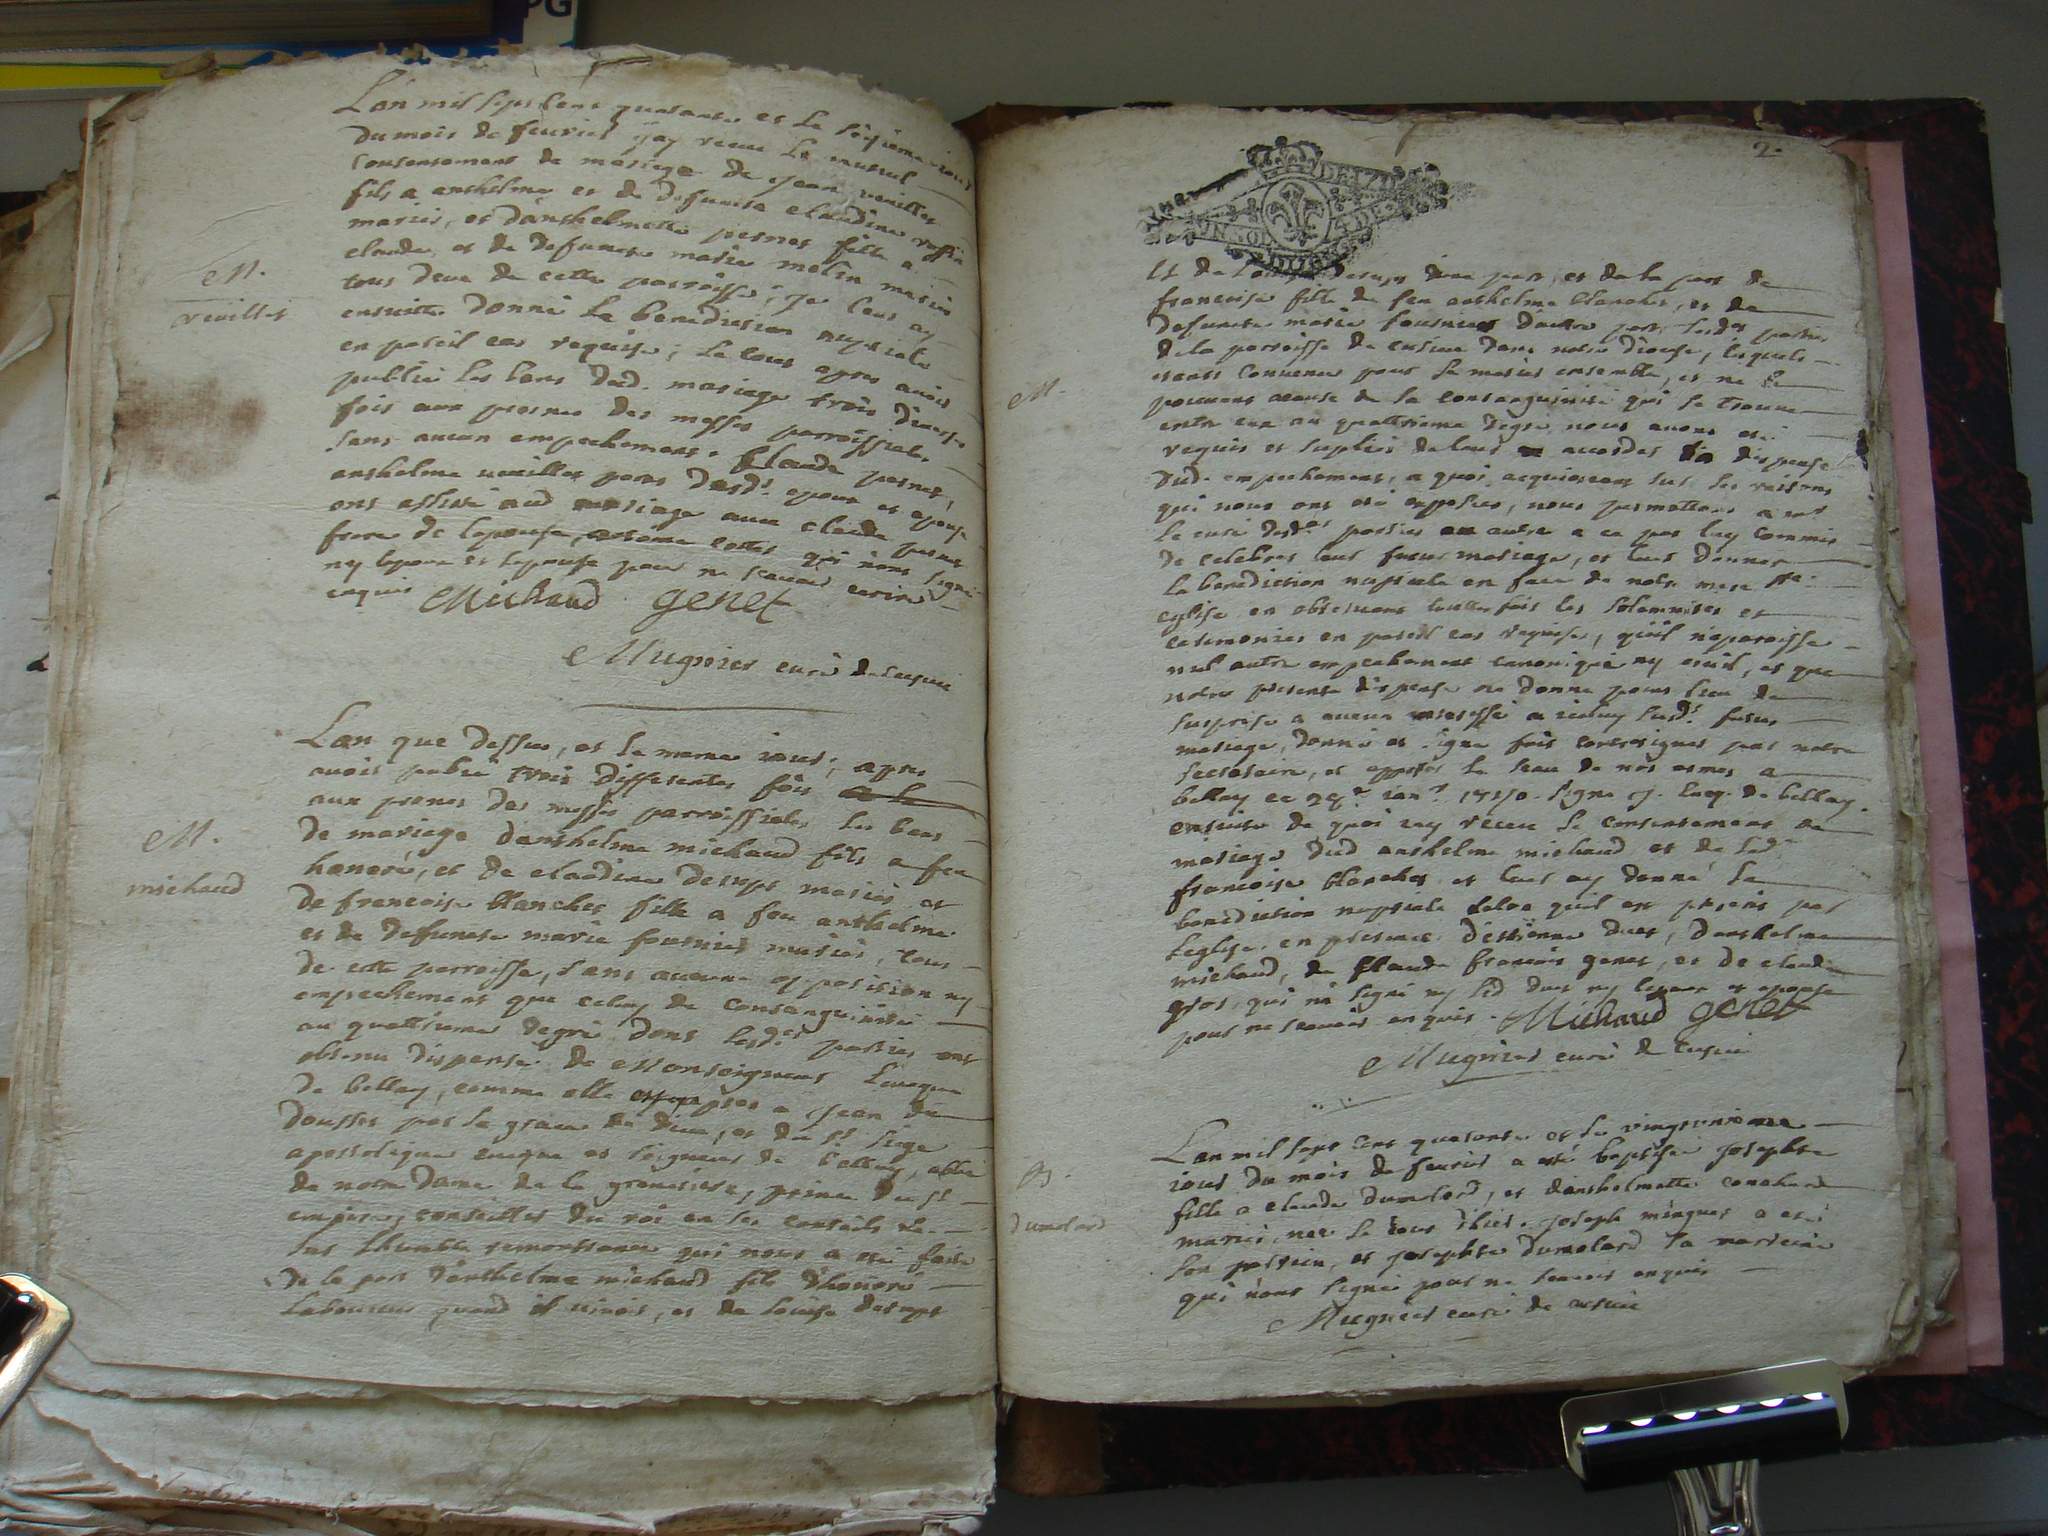 PG
L'an mil sept cent quarante et le seizieme jour
du mois de fevrier j'ay receu le mutuel
consentement de mariage de Jean veuillet
fils a anthelme et de defunte claudine ruffin
mariés, et d'anthelmette pernet fille a
claude, et de defuncte marie molin mariés
tous deux de cette parroisse, je leur ay
ensuitte donné la benediction nuptiale
en pareil cas requise; le tout apres avoir
publié les bans dud. mariage trois diverses
fois aux prones des messes parroissiales
sans aucun empechement. Claude pernet,
anthelme veuillet peres desd.ts epoux et epouse
ont assisté aud mariage avec claude pernet
frere de l'epouse, qui n'ont signé
ny lepoux et lepouse pour ne scavoir ecrire
enquis Michaud genet
Mugnier curé de
M.
veuillet
Lan que dessus, et le meme jour, apres
avoir publié trois differentes fois
aux prones des messes parroissiales les bans
de mariage d'anthelme michaud fils a feu
honoré, et de claudine mariés et
de francoise blanchet fille a feu anthelme
et de defuncte marie fournier mariés, tous
de cette parroisse, sans aucune opposition ny
empechement que celuy de consanguinité
au quattrieme degré dont lesd.es parties ont
obtenu dispense de Monseigneur l'eveque
de bellay, comme elle apres a Jean du
doussot par la grace de Dieu, et du St siege
apostolique eveque et seigneur de bellay, abbé
de notre Dame de la, prince du St
empire, conseiller du roi en ses conseils
sur l'humble remontrance qui nous a eté faite
de la part d'anthelme michaud fils d'honoré
laboureur quand il vivoit, et de louise
M.
michaud
2.
Et de dune part, et de la part de
francoise fille de feu anthelme blanchet, et de
defuncte marie fournier d'autre part, lesd.es parties
de la parroisse de dans notre diocese, lesquels
etants convenus pour se marier ensemble, et ne le
pouvant acause de la consanguinité qui se trouve
entre eux au quattrieme degré, nous avons eté
requis et suppliés de leur accorder la dispense
dud. empechement, a quoi acquiescant sur les raisons
qui nous ont eté exposées, nous permettons a mr
le curé desd.es parties ou autre a ce par luy commis
de celebrer leur futur mariage, et leur donner
la benediction nuptiale en face de notre mere ste
eglise en observant touttes fois les solemnités et
ceremonies en pareil cas requises, qu'il n'aparoisse
nul autre empechement canonique ny civil, et que
notre presente dispense ne donne point lieu de
surprise a aucun a iceluy susd.t futur
mariage, donné et signé fait contresigner par notre
secretaire, et apposer le sceau de nos armes a
bellay ce jan.r signé J. eveq. de bellay.
ensuite de quoi j'ay receu le consentement de
mariage dud anthelme michaud et de lad
francoise blanchet et leur ay donné la
benediction nuptiale selon quil est prescrit par
l'eglise en presence d'estienne, d'anthelme
michaud, de Claude francois genet, et de claude
gros, qui n'a signé ny led ny lepoux et epouse
pour ne scavoir enquis. Michaud genet
Mugnier curé de
M.
L'an mil sept cent quarante et le vingtunieme
jour du mois de fevrier a eté baptisée josephte
fille a claude dumolard, et d'anthelmette
mariés, née le jour d'hier. joseph a eté
son parrain, et josephte dumolard sa marraine
qui n'ont signé pour ne scavoir enquis
Mugnier curé de
B.
dumolard